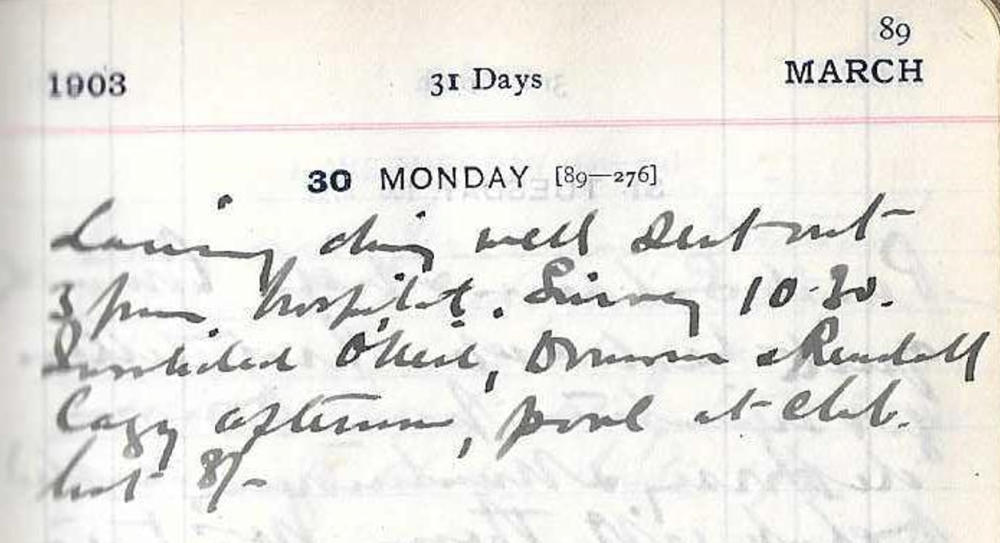 89
1903 31 Days MARCH
30 MONDAY [89—276]
doing well sent out
3 from hospital. Survey 10.30.
Invalided O'Neil, & Rendall
Lazy afternoon, pool at club.
lost 8/-